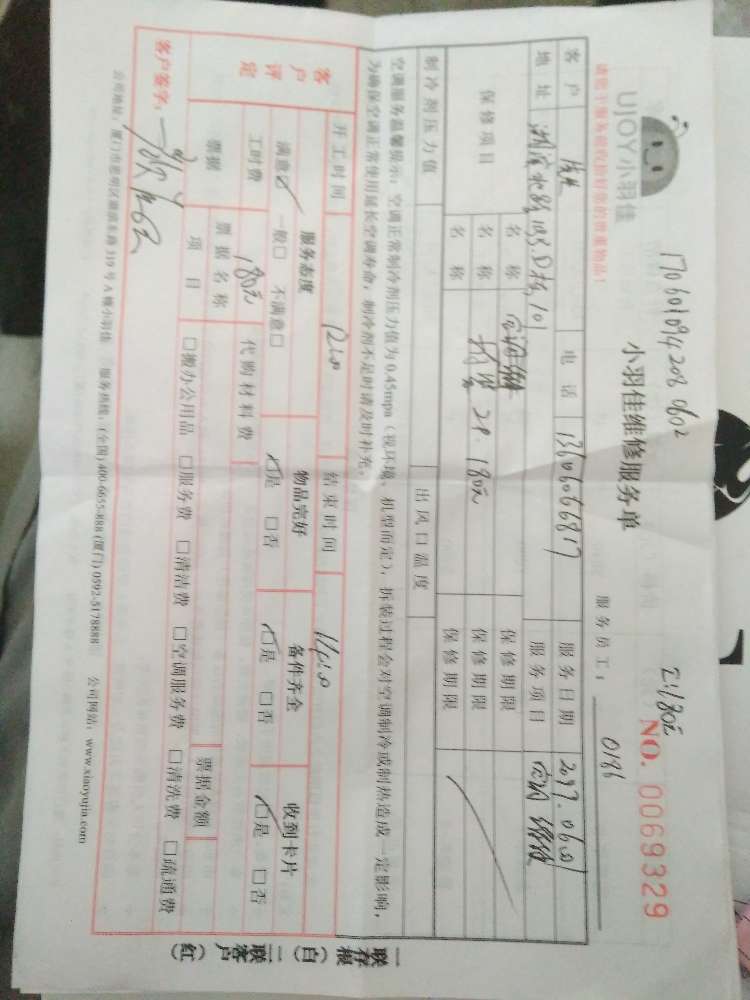 1706010942080602
UJOY小羽佳
小羽佳维修服务单
NO. 0069329
请您于服务前收拾好您的贵重物品！
服务员工： 0186
客户 电话 13606066817 服务日期
地址 服务项目 空调
保修项目 名称 保修期限
名称 180元 保修期限
名称 保修期限
制冷剂压力值 出风口温度
空调服务温馨提示：空调正常制冷剂压力值为0.45mpa（视环境、机型而定），拆装过程会对空调制冷或制热造成一定影响，
为确保空调正常使用延长空调寿命，制冷剂不足时请及时补充。
开工时间 结束时间
客户评定 服务态度 物品完好 备件齐全 收到卡片
满意☑ 一般□ 不满意□ ☑是 □否 ☑是 □否 ☑是 □否
工时费 180元 代购材料费
票据 票据名称 票据金额
项目 □搬办公用品 □服务费 □清洁费 □空调服务费 □清洗费 □疏通费
客户签字：
公司地址：厦门市思明区湖滨东路319号A幢小羽佳 服务热线：(全国)400-6655-888 (厦门)0592-5178888 公司网站：www.xiaoyujia.com
一联存根（白） 二联客户（红）